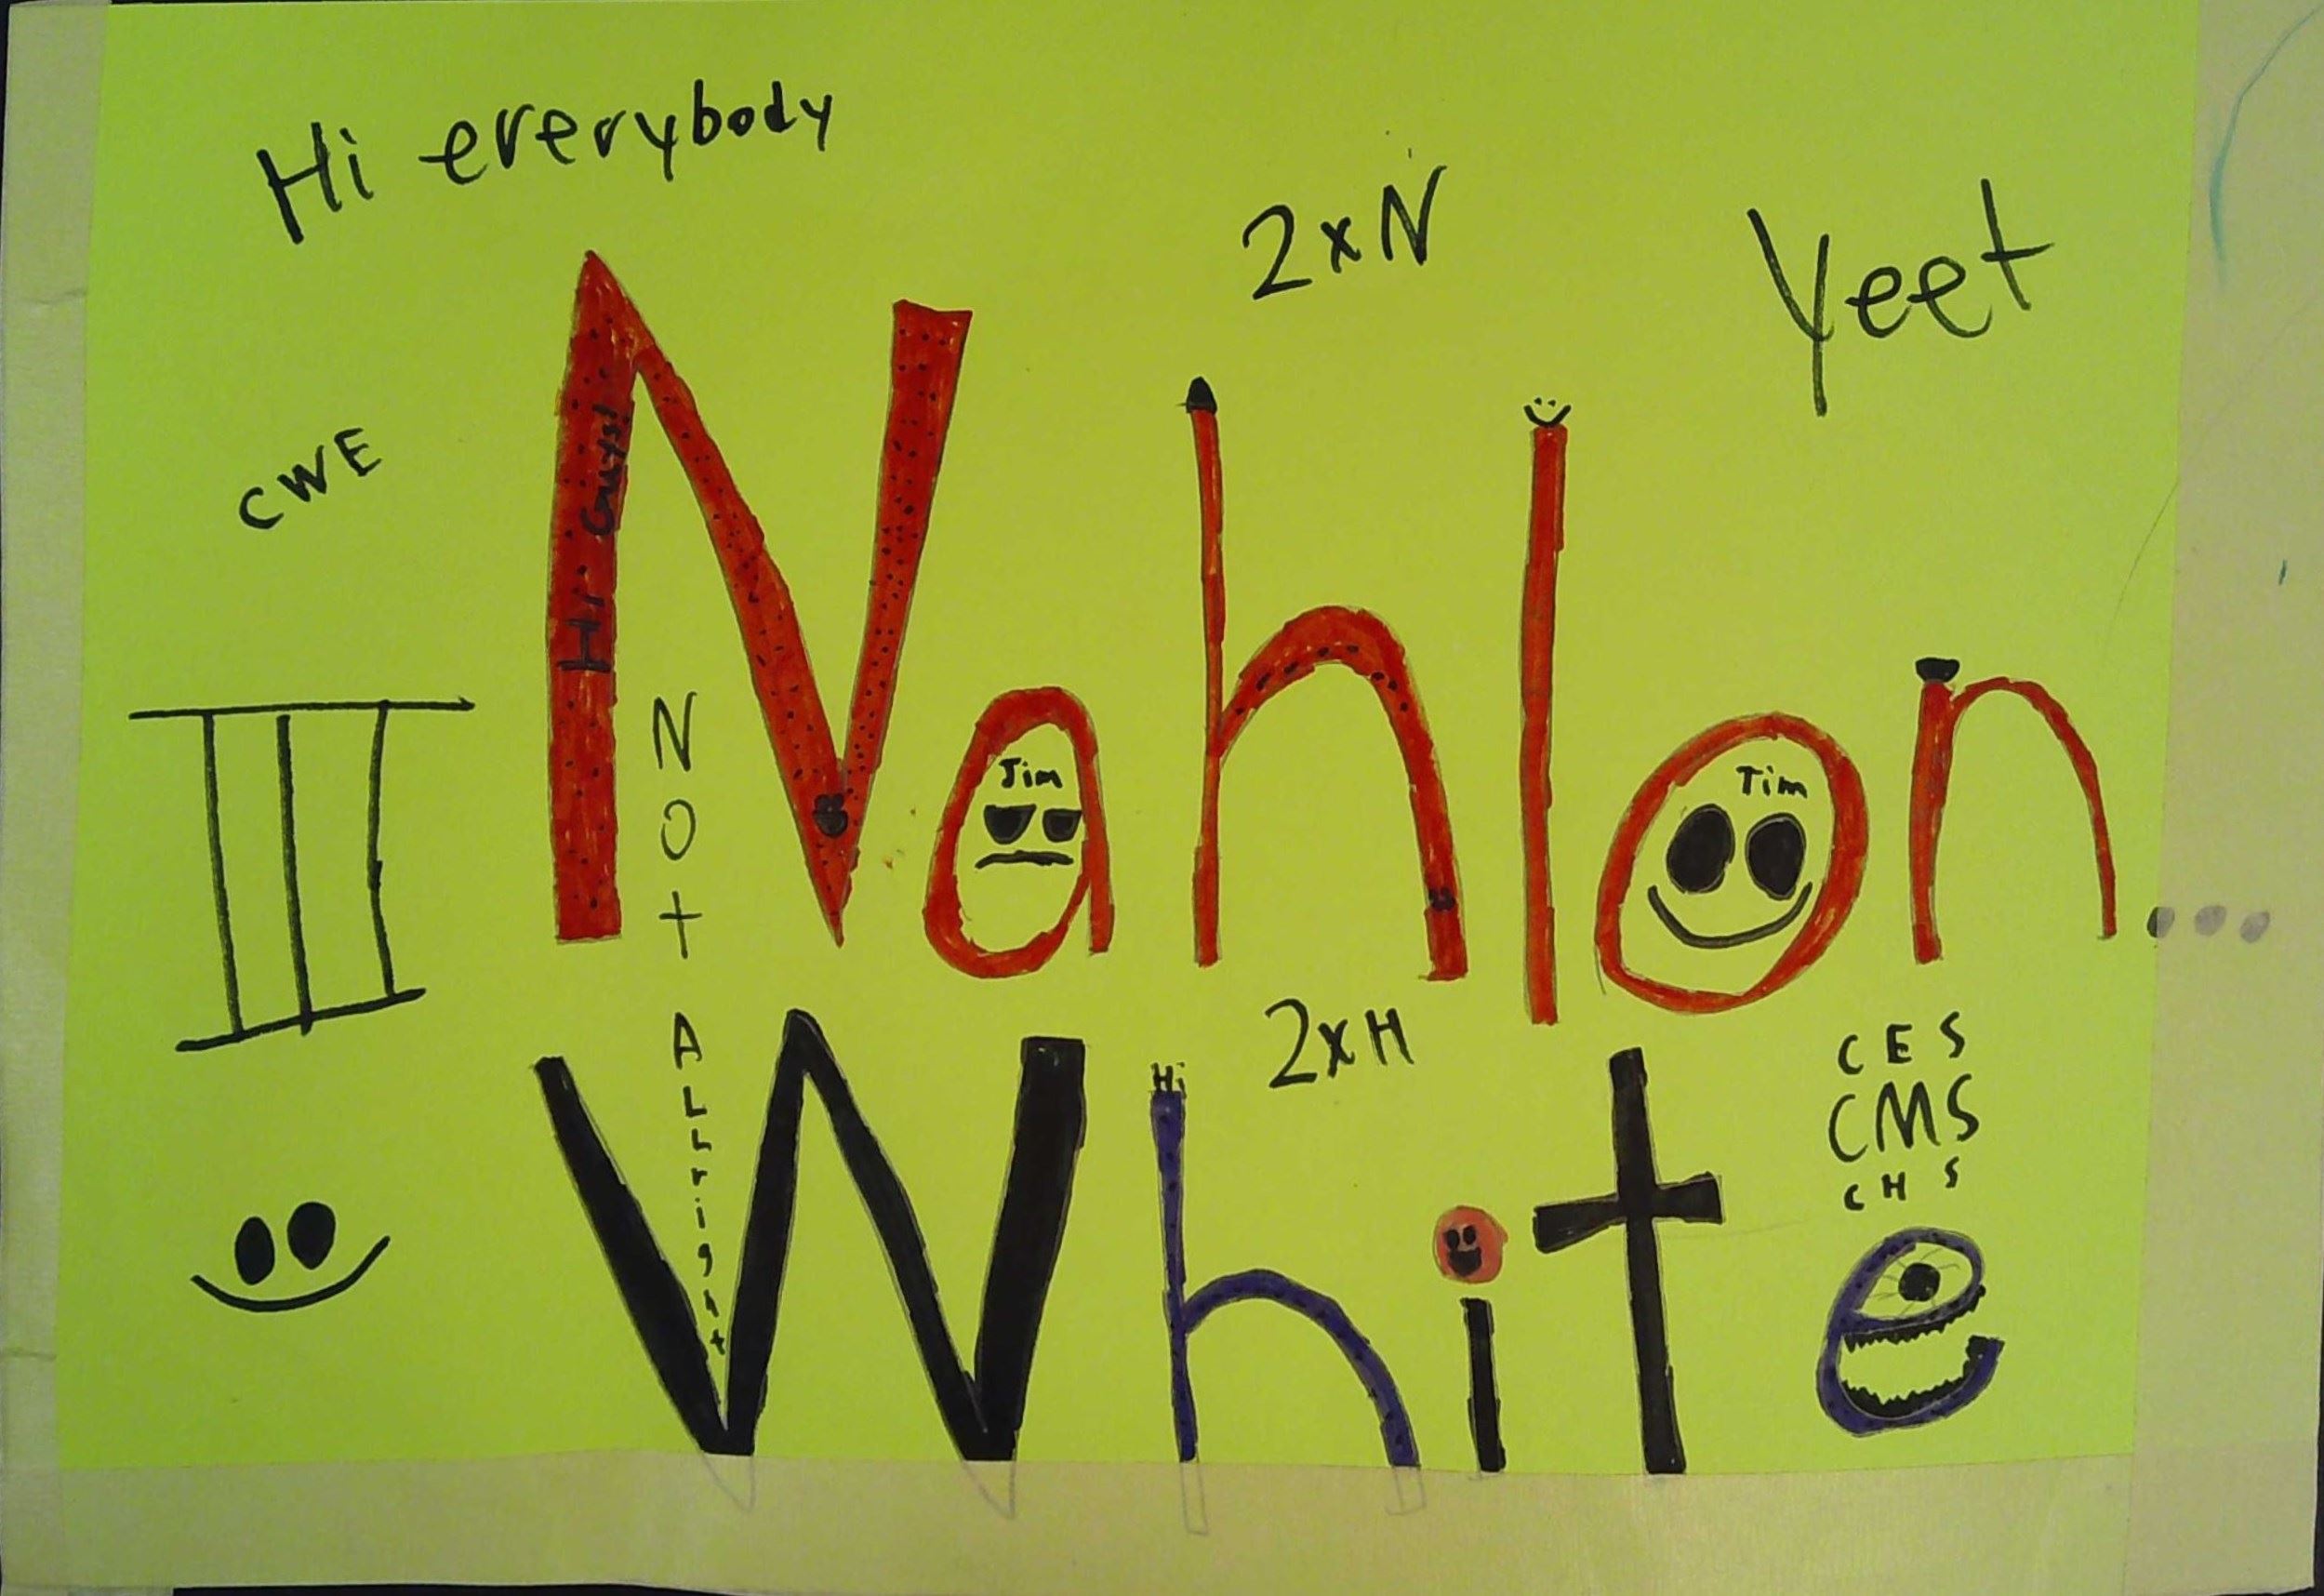 Hi everybody
2xN
Yeet
CWE
Hi Guys!
Nahlon...
Jim
Tim
III
NOT ALLright
2xH
CES
CMS
CHS
Hi
White